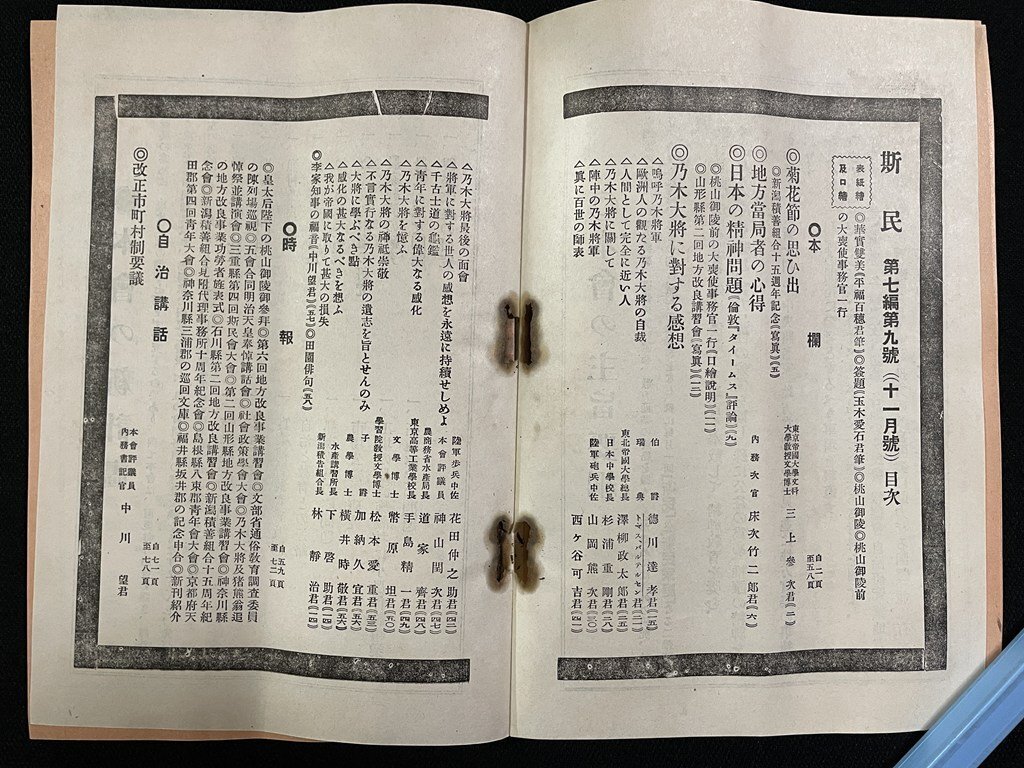 斯民 第七編第九號(十一月號)目次
表紙繪及口繪
◎華實雙美(平福百穗君筆)◎答題(玉木愛石君筆)◎桃山御陵◎桃山御陵前の大喪使事務官一行
◎本欄 自一頁至五八頁
◎菊花節の思ひ出 東京帝國大學文科大學敎授文學博士 三上參次君(二)
◎新潟積善組合十五週年記念(寫眞)(五)
◎地方當局者の心得 內務次官 床次竹二郎君(六)
◎日本の精神問題(倫敦『タイームス』評論)(九)
◎桃山御陵前の大喪使事務官一行(口繪說明)(一二)
◎山形縣第二回地方改良講習會(寫眞)(一三)
◎乃木大將に對する感想
△嗚呼乃木將軍 伯爵 德川達孝君(一五)
△歐洲人の觀たる乃木大將の自裁 瑞典 トマス、バルテルセン君(二一)
△人間として完全に近い人 東北帝國大學總長 澤柳政太郎君(二五)
△乃木大將に關して 日本中學校長 杉浦重剛君(二八)
△陣中の乃木將軍 陸軍步兵中佐 山岡熊次君(三〇)
△眞に百世の師表 陸軍砲兵中佐 西ヶ谷可吉君(四一)
△乃木大將最後の面會 陸軍步兵中佐 花田仲之助君(四二)
△將軍に對する世人の感想を永遠に持續せしめよ 本會評議員 神山閏次君(四七)
△千古士道の龜鑑 農商務省水產局長 道家齊君(四八)
△靑年に對する偉大なる感化 東京高等工業學校長 手島精一君(四九)
△乃木大將を憶ふ 文學博士 幣原坦君(五〇)
△乃木大將の神祇崇敬 學習院敎授文學博士 松本愛重君(五三)
△不言實行なる乃木大將の遺志を旨とせんのみ 子爵 加納久宜君(五六)
△大將に學ぶべき點 農學博士 橫井時敬君(五六)
△感化の甚大なるべきを想ふ 水產講習所長 下啓助君(一四)
△我が帝國に取りて甚大の損失 新潟積善組合長 林靜治君(一四)
◎李家知事の福音(中川望君)(五七)◎田園俳句(五八)
◎時報 自五九頁至七二頁
◎皇太后陛下の桃山御陵御參拜◎第六回地方改良事業講習會◎文部省通俗敎育調查委員
の陳列場巡視◎五會合同明治天皇奉悼講話會◎社會政策學會大會◎乃木大將及猪熊翁追
悼祭並講演會◎三重縣第四回斯民會大會◎第二回山形縣地方改良事業講習會◎神奈川縣
の地方改良事業功勞者旌表式◎石川縣第二回地方改良講習會◎新潟積善組合十五周年紀
念會◎新潟積善組合見附代理事務所十周年紀念會◎島根縣八束郡靑年會大會◎京都府天
田郡第四回靑年大會◎神奈川縣三浦郡の巡回文庫◎福井縣坂井郡の記念申合◎新刊紹介
◎自治講話 自七一頁至七八頁
◎改正市町村制要議 本會評議員內務書記官 中川望君